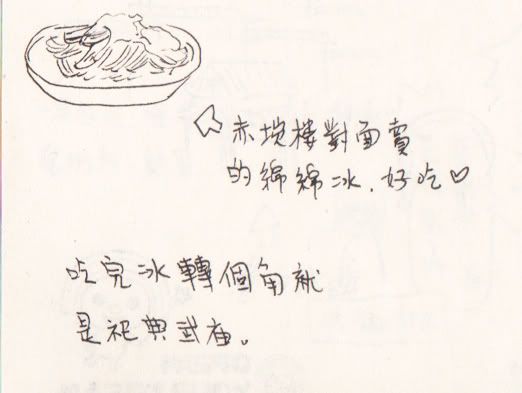 赤崁樓對面賣
的綿綿冰,好吃♡
吃完冰轉個角就
是祀典武廟。